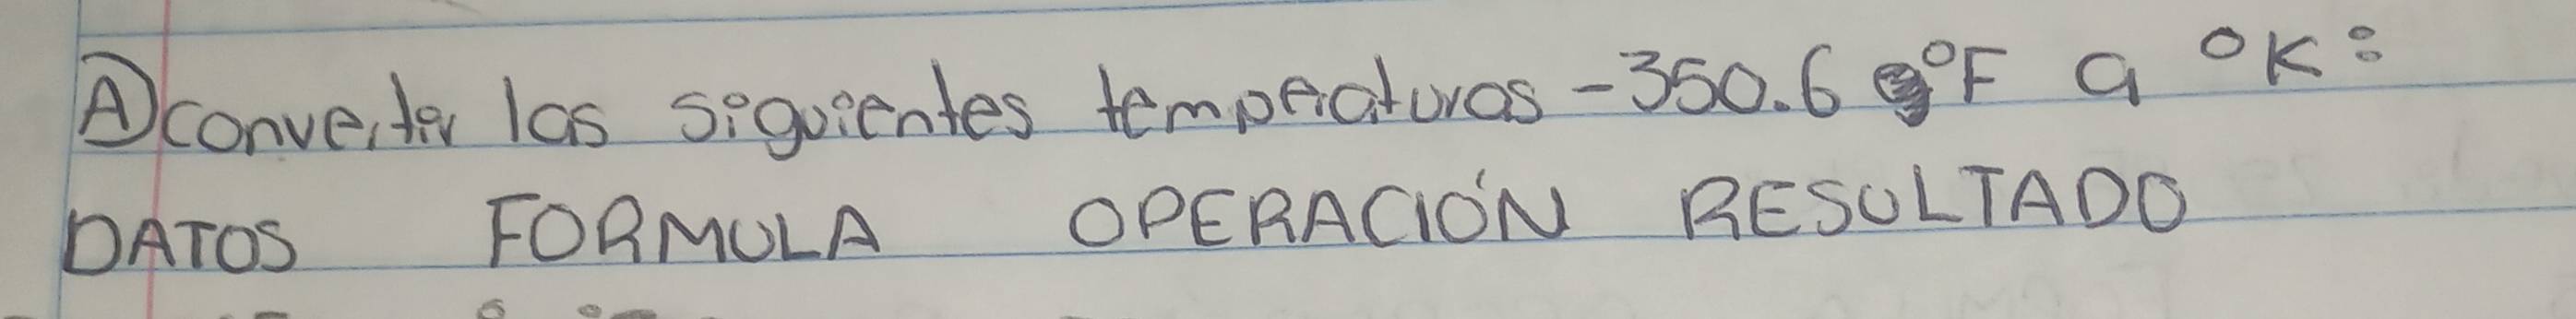 A) convertir las siguientes temperaturas -350.6 °F a °K:
DATOS FORMULA OPERACIÓN RESULTADO